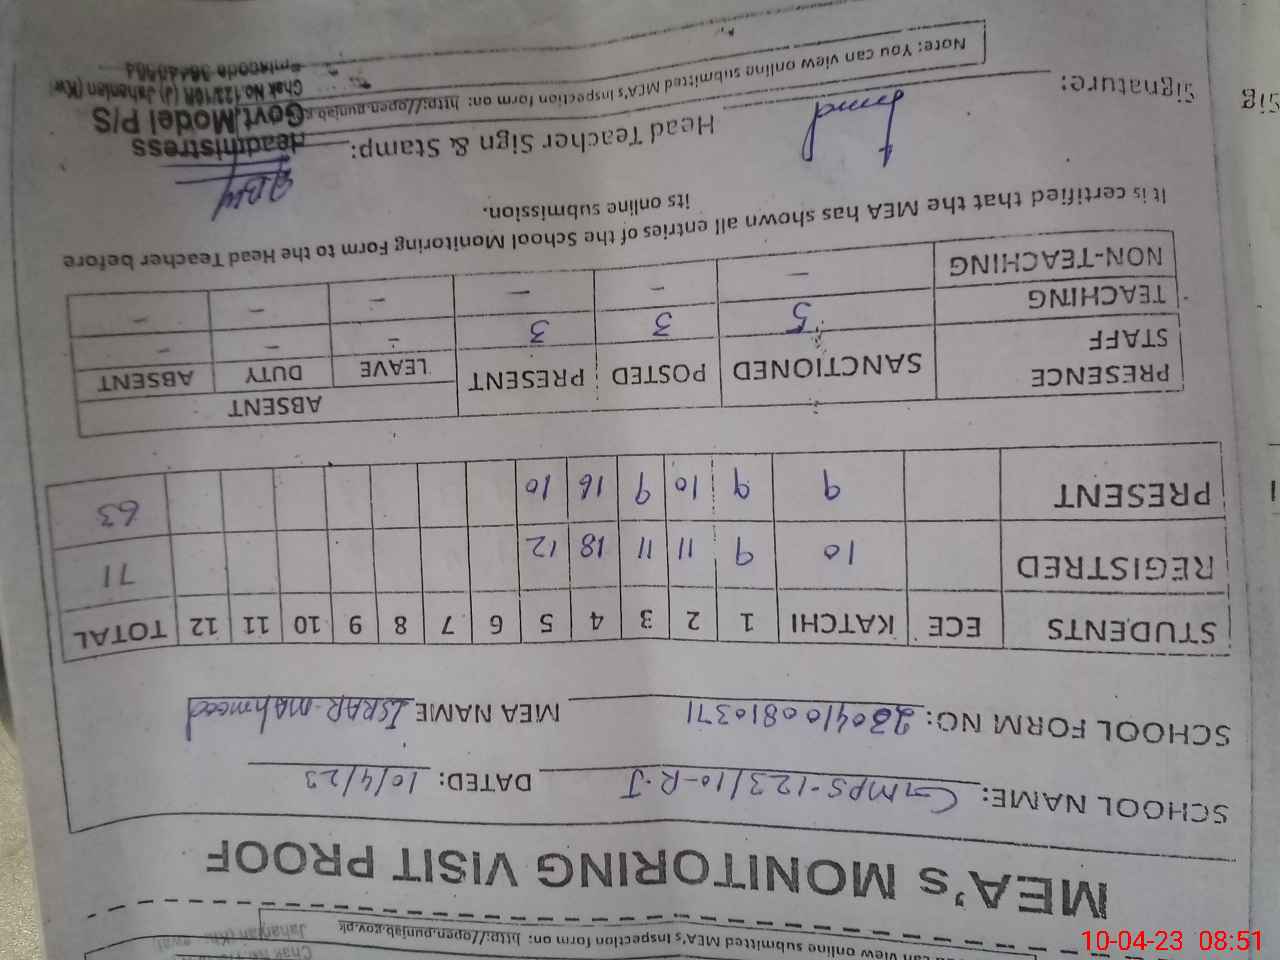 can view online submitted MEA's inspection form on: http://open.punjab.gov.pk
MEA's MONITORING VISIT PROOF
SCHOOL NAME: GMPS-123/10-R.J DATED: 10/4/23
SCHOOL FORM NO: 2304100810371 MEA NAME ISRAR mahmood
STUDENTS ECE KATCHI 1 2 3 4 5 6 7 8 9 10 11 12 TOTAL
REGISTRED 10 9 11 11 18 12 71
PRESENT 9 9 10 9 16 10 63
PRESENCE STAFF SANCTIONED POSTED PRESENT ABSENT
LEAVE DUTY ABSENT
TEACHING 5 3 3 - - -
NON-TEACHING - - - - - -
It is certified that the MEA has shown all entries of the School Monitoring Form to the Head Teacher before
its online submission.
Signature: Head Teacher Sign & Stamp:
Headmistress
Govt.Model P/S
Chak No.123/10R (J) Jahanian (Kw
Note: You can view online submitted MEA's inspection form on: http://open.punjab.g
Sig
10-04-23 08:51